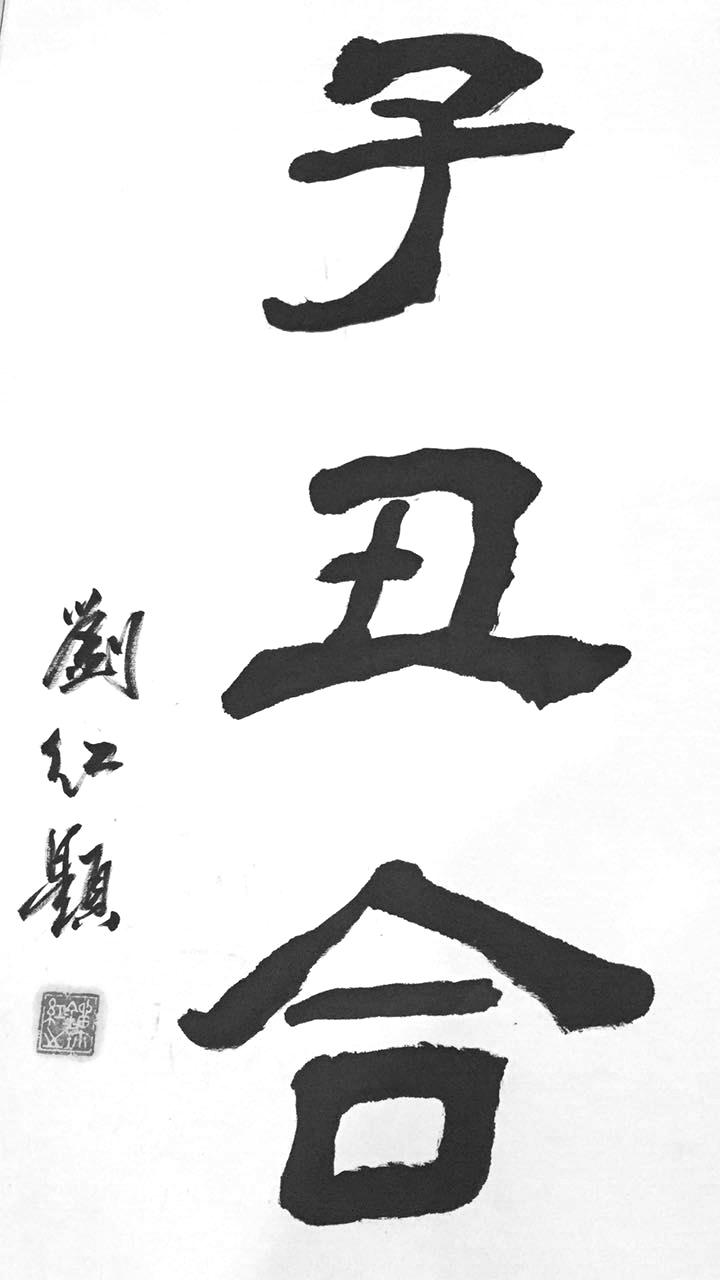 子丑合
劉紅題